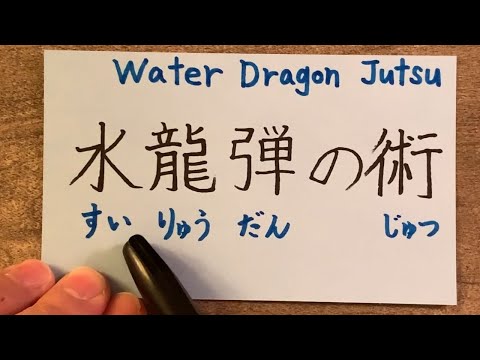 Water Dragon Jutsu
水龍弾の術
すい りゅう だん じゅつ